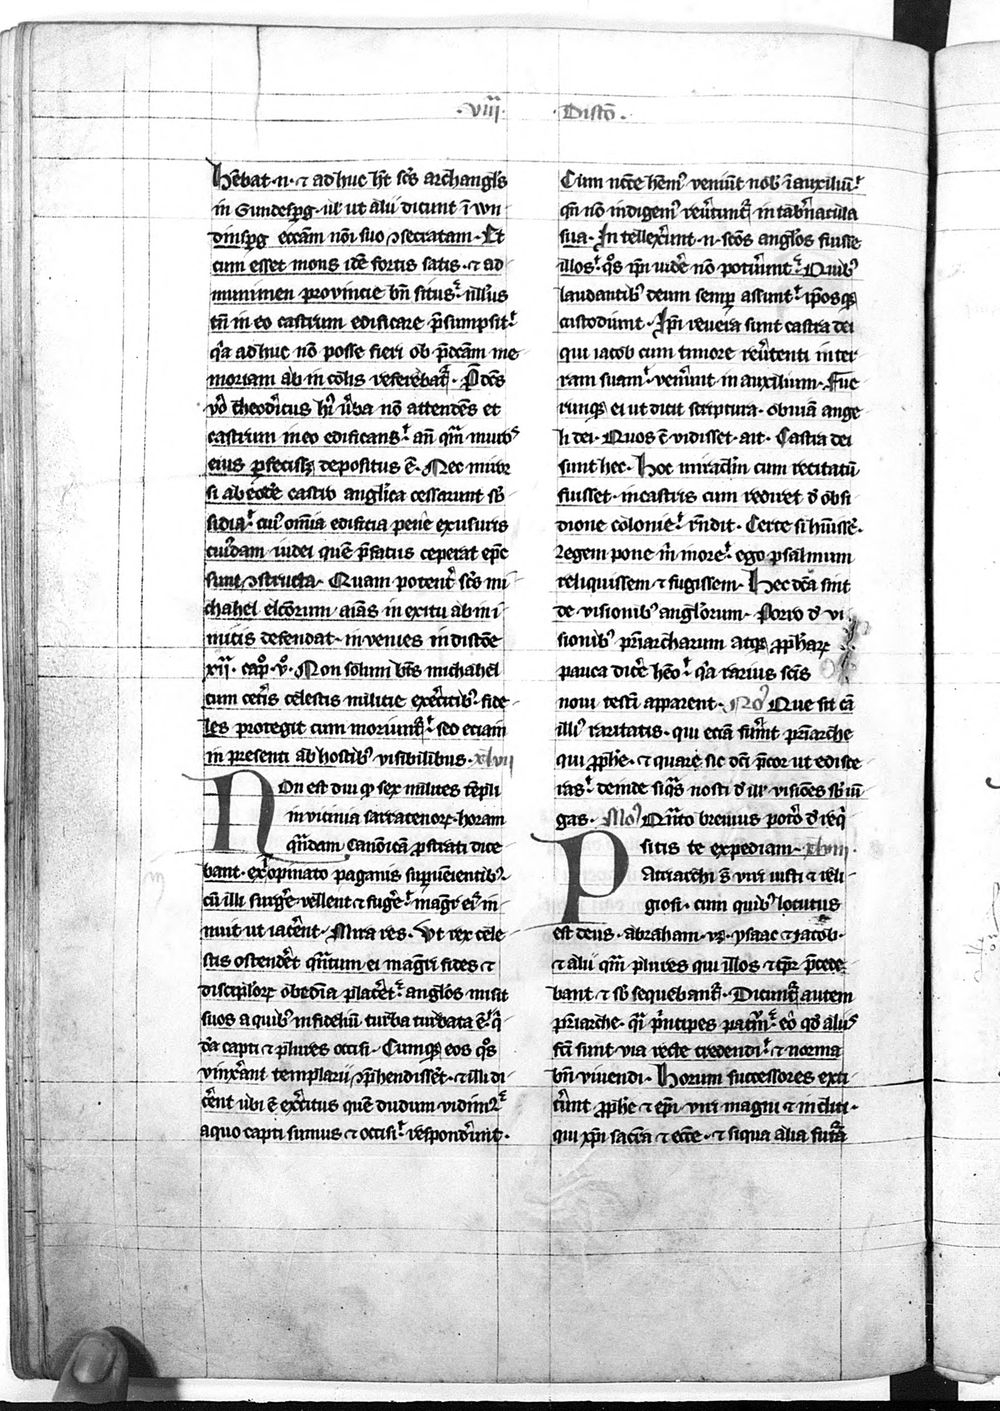 ·viii· ·Distō·
hēbat·n·⁊ adhuc hꝫ sc̄s archangl̓s
in Gundesꝑg· ul̓ ut alii dicunt ī wu
dinsꝑg eccām nōi suo ↄsecratam· Et
cum esset mons idē fortis satis·⁊ ad
munimen prouincie bn̄ situs: nullus
tn̄ in eo castrum edificare p̄sumpsit:
q̓a adhuc nō posse fieri ob p̄dcām me
moriam ab incolis referebat᷑· P̄dcūs
vō theodericus hꝰ ūba nō attendēs et
castrum in eo edificans: an̄ qm̄ muros
eius ꝑfecissꝫ depositus ē· Nec mirū
si ab eodē castro anglica cessarunt sb̄
sidia: cuꝰ om̄ia edificia pene exusuris
cuꝰdam iudei quē p̄fatus ceperat ep̄c
sunt ↄstructa· Quam potent̓ sc̄s mi
chahel elcōrum aīas in exitu ab ini
micis defendat· inuenies in distōe
xii· cap̊· v̊· Non solum bt̄s michahel
cum cet̓is celestis militie exercitibꝰ fide
les protegit cum moriunt᷑: sed eciam
in presenti ab hostibꝰ visibilibus· xlvii
Non est diu ꝙ sex milites tēpli
in vicinia sarracenoꝝ·horam
qn̄dam canōicā ꝓstrati dice
bant· exopinato paganis suꝑuenientibꝰ
cū illi surgē vellent ⁊ fugē: magr̄ eiꝰ in
nuit ut iacēnt· Mira res· Vt rex cele
stis ostendet qn̄tum ei magr̄i fides ⁊
discipl̓oꝝ obediā placēt: angl̓os misit
suos a quibꝰ infideliū turba turbata ē: q̓
dā capti ⁊ plures occisi· Cumqꝫ eos qͦs
vinxerant templarii ↄp̄hendissēt·⁊ illi di
cēnt ubi ē exercitus quē dudum vidimꝰ:
a quo capti sumus ⁊ occisi: responderunt·
Cum nccē hēmꝰ veniūt nob̓ ī auxiliū:
qn̄ nō indigemꝰ reūtunt᷑ in tab̄nacula
sua· Intellexerunt·n·sc̄os angl̓os fuisse
illos: qͦs ip̄i uidē nō potuerunt: Quibꝰ
laudantibꝰ deum semꝑ assunt: ip̄osqꝫ
custodiunt· Ip̄i reuera sunt castra dei
qui iacob cum timore reūtenti in ter
ram suam: venerunt in auxilium· Fue
runtqꝫ ei ut dicit scriptura· obuiā ange
li dei· Quos cū vidisset·ait· Castra dei
sunt hec· Hoc miraclm̄ cum recitatū
fuisset·in castris cum rediret d̓ obsi
dione colonie: rn̄dit· Certe si hūisse·
Regem pone m̄ more: ego psalmum
reliquissem ⁊ fugissem· Hec dcā sint
de visionibꝰ angl̓orum· Porro d̓ vi
sionibꝰ p̄riarcharum atqꝫ ꝓphaꝝ
pauca dicē hēo: q̓a rarius sc̄is
noui testī apparent· No᷒ Que sit cā
illiꝰ raritatis· qui eciā fuerint p̄riarche
qui ꝓphe·⁊ quare sic dcī p̄cor ut edisse
ras: deinde siq̓s nosti d̓ ill̓ visiōes sb̄iū
gas· Mo᷒ Qn̄to breuius potero d̓ req̓
sitis te expediam· xlviii·
Patriarchi s̄ viri iusti ⁊ reli
giosi· cum quibꝰ locutus
est deus·abraham·vꝫ·ysaac ⁊ Jacob·
⁊ alii qm̄ plures qui illos ⁊ tꝑr p̄cede
bant ⁊ sb̄ sequebant᷑· Dicunt᷑ autem
p̄riarche· q̓i p̓ncipes patrum: eo qd̓ aliis
fcī sunt via recte credendi: ⁊ norma
bn̄ viuendi· Horum successores exti
terunt ꝓphe ⁊ ep̄i·viri magni ⁊ incliti·
qui xp̄i sacra ⁊ ecce·⁊ siqua alia futura